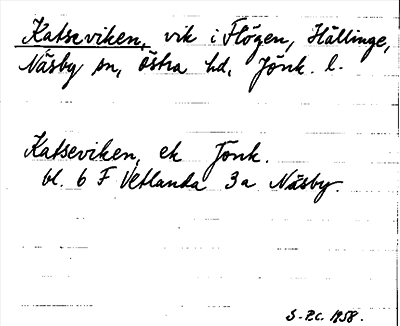 Katseviken, vik i Flögen, Hällinge,
Näsby sn, Östra hd, Jönk. l.
Katseviken, ek Jönk.
bl. 6 F Vetlanda 3a Näsby.
S-P.C. 1958.